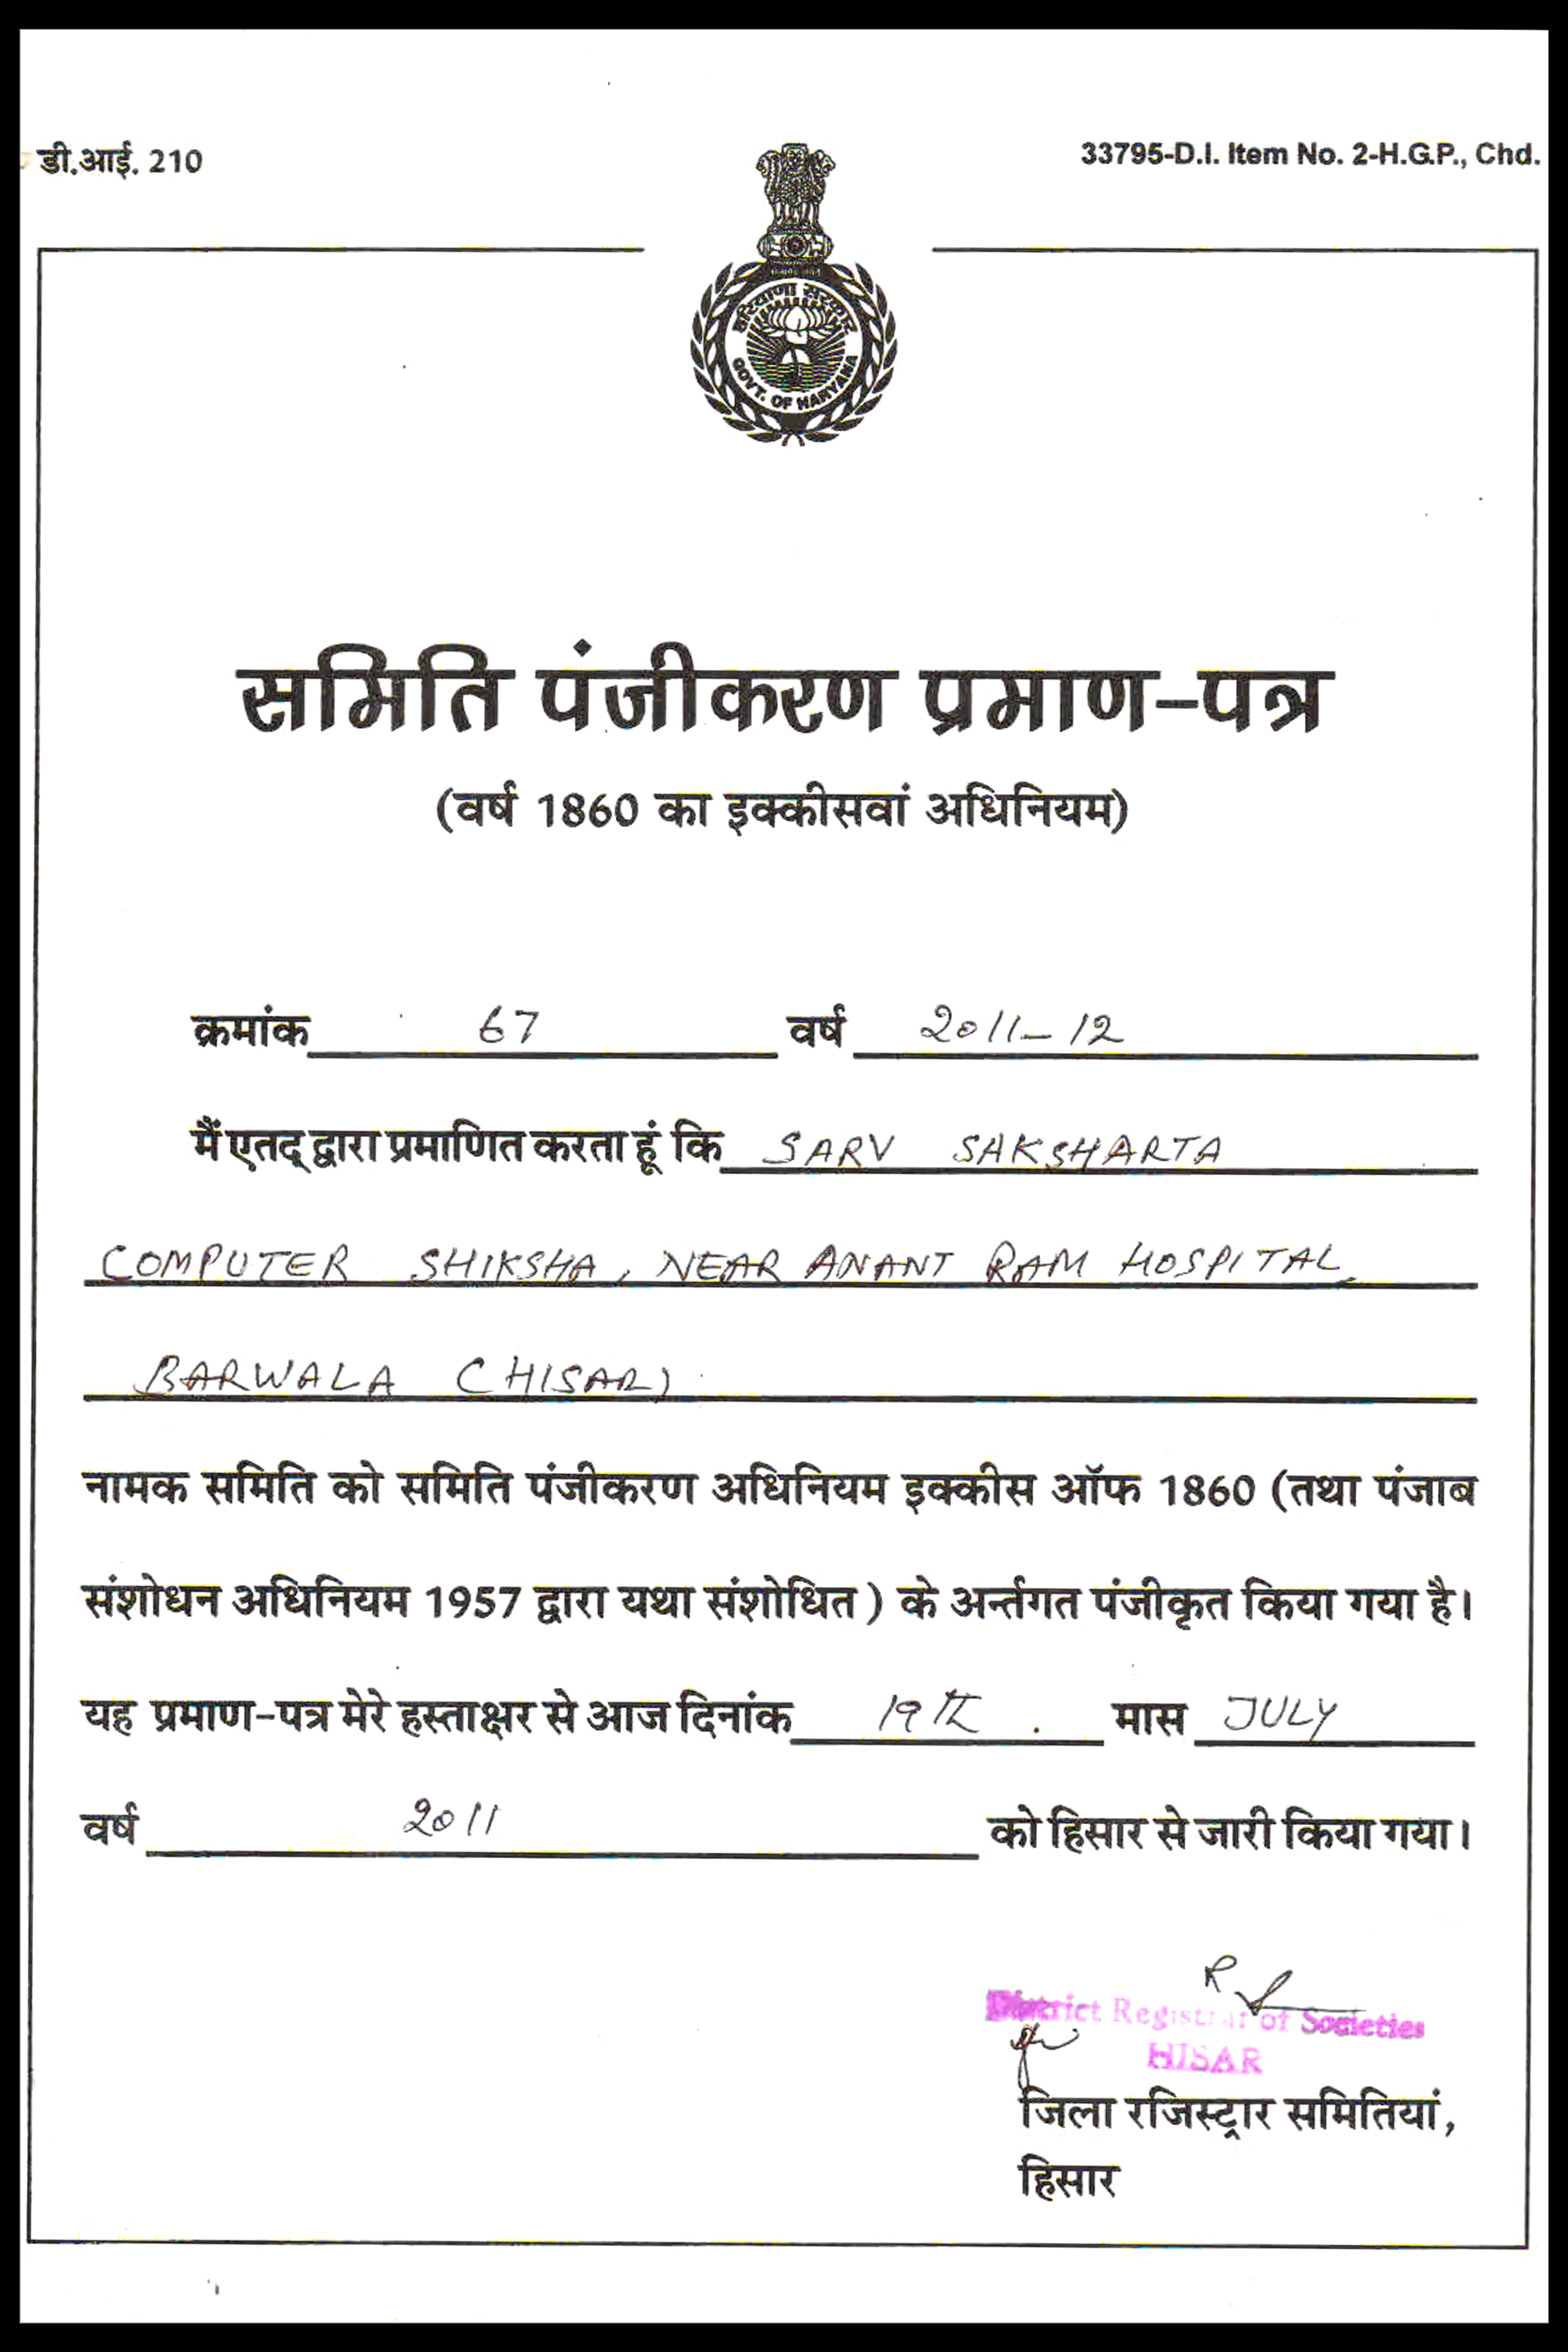 डी.आई. 210
33795-D.I. Item No. 2-H.G.P., Chd.
हरियाणा सरकार
GOVT. OF HARYANA
समिति पंजीकरण प्रमाण-पत्र
(वर्ष 1860 का इक्कीसवां अधिनियम)
क्रमांक 67 वर्ष 2011-12
मैं एतद् द्वारा प्रमाणित करता हूं कि SARV SAKSHARTA
COMPUTER SHIKSHA, NEAR ANANT RAM HOSPITAL,
BARWALA (HISAR)
नामक समिति को समिति पंजीकरण अधिनियम इक्कीस ऑफ 1860 (तथा पंजाब
संशोधन अधिनियम 1957 द्वारा यथा संशोधित) के अर्न्तगत पंजीकृत किया गया है।
यह प्रमाण-पत्र मेरे हस्ताक्षर से आज दिनांक 19th मास JULY
वर्ष 2011 को हिसार से जारी किया गया।
District Registrar of Societies
HISAR
जिला रजिस्ट्रार समितियां,
हिसार